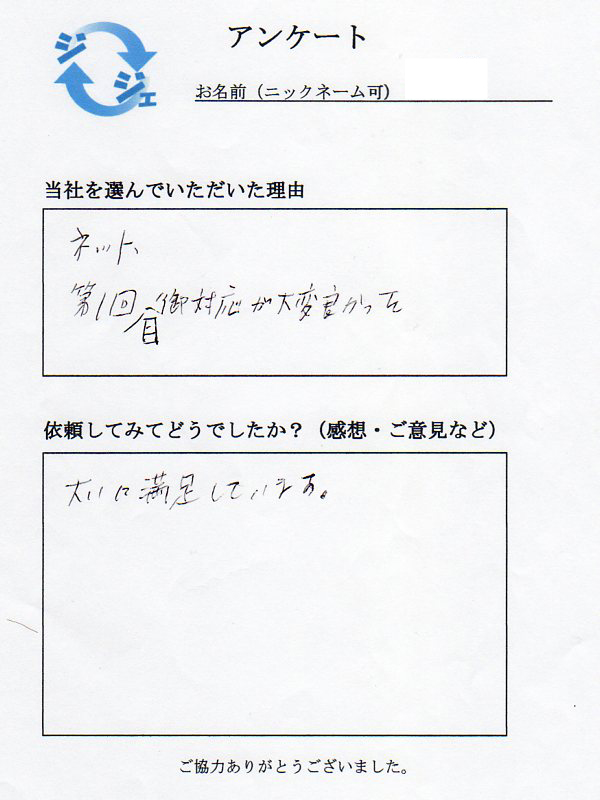 ジ
ジェ
アンケート
お名前（ニックネーム可）
当社を選んでいただいた理由
ネット、
第1回目御対応が大変良かった
依頼してみてどうでしたか？（感想・ご意見など）
大いに満足しています。
ご協力ありがとうございました。